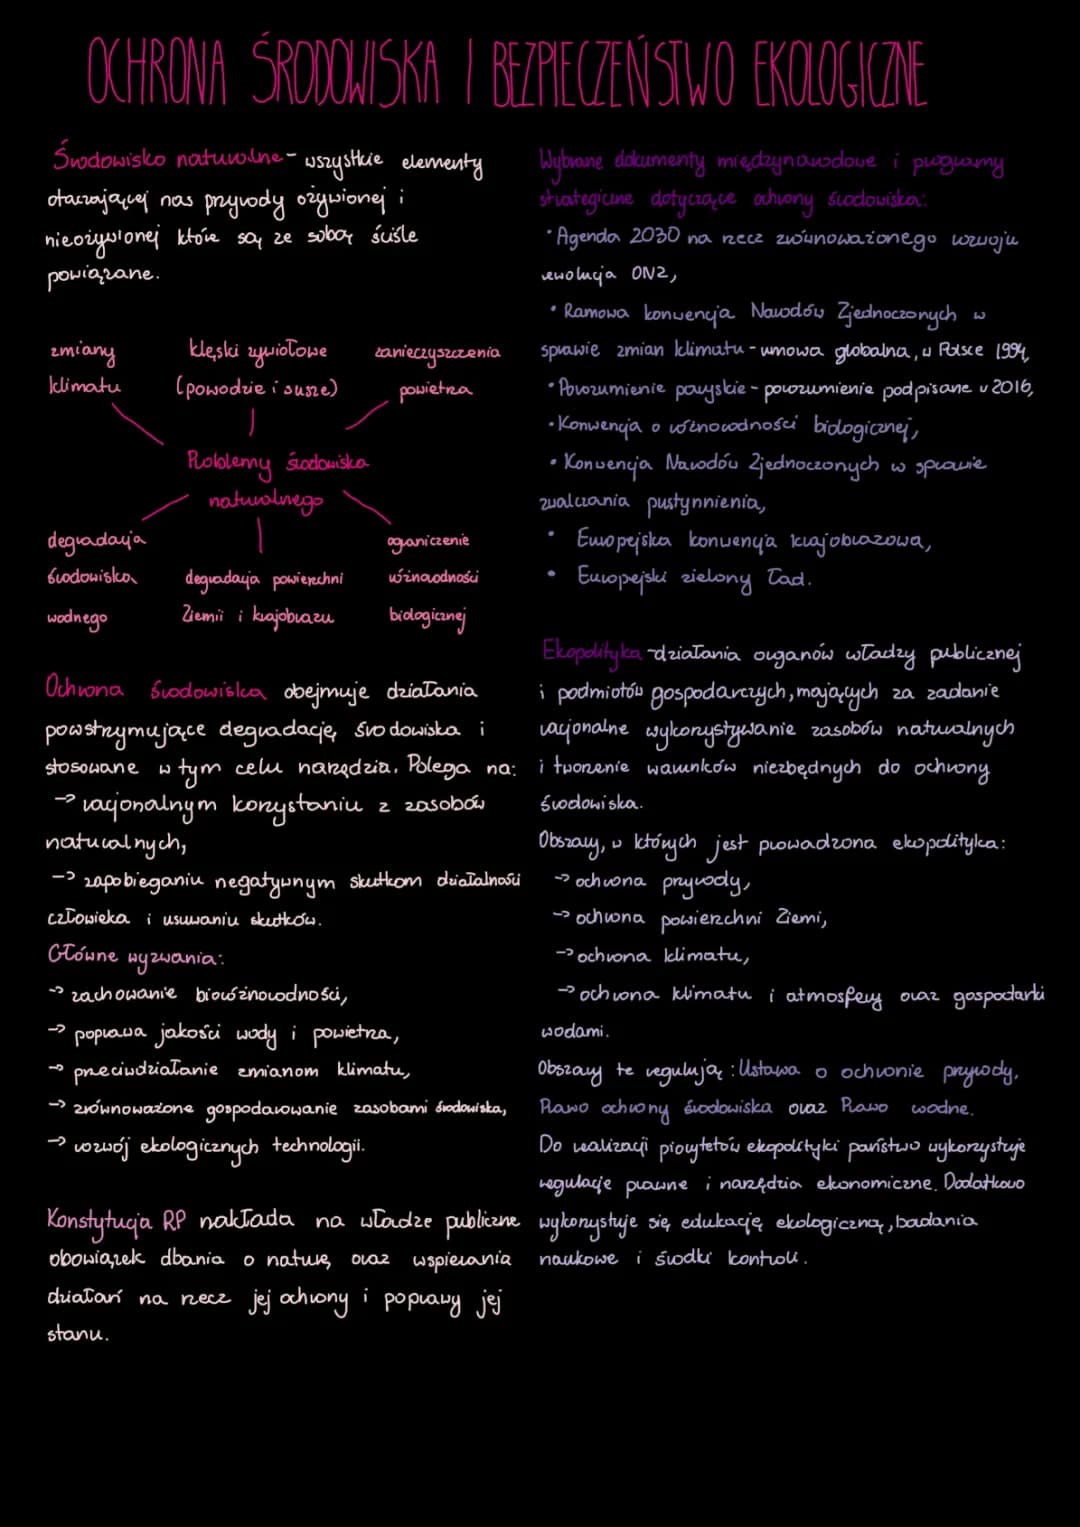 OCHRONA ŚRODOWISKA I BEZPIECZEŃSTWO EKOLOGICZNE
Środowisko naturalne - wszystkie elementy
otaczającej nas przyrody ożywionej i
nieożywionej które są ze sobą ściśle
powiązane.
zmiany klęski żywiołowe zanieczyszczenia
klimatu (powodzie i susze) powietrza
Problemy środowiska
naturalnego
degradacja ograniczenie
środowiska degradacja powierzchni różnorodności
wodnego Ziemii i krajobrazu biologicznej
Ochrona środowiska obejmuje działania
powstrzymujące degradację środowiska i
stosowane w tym celu narzędzia. Polega na:
-> racjonalnym korzystaniu z zasobów
naturalnych,
-> zapobieganiu negatywnym skutkom działalności
człowieka i usuwaniu skutków.
Główne wyzwania:
-> zachowanie bioróżnorodności,
-> poprawa jakości wody i powietrza,
-> przeciwdziałanie zmianom klimatu,
-> zrównoważone gospodarowanie zasobami środowiska,
-> rozwój ekologicznych technologii.
Konstytucja RP nakłada na władze publiczne
obowiązek dbania o naturę oraz wspierania
działań na rzecz jej ochrony i poprawy jej
stanu.
Wybrane dokumenty międzynarodowe i programy
strategiczne dotyczące ochrony środowiska:
• Agenda 2030 na rzecz zrównoważonego rozwoju
rewolucja ONZ,
• Ramowa konwencja Narodów Zjednoczonych w
sprawie zmian klimatu - umowa globalna, w Polsce 1994,
• Porozumienie paryskie - porozumienie podpisane w 2016,
• Konwencja o różnorodności biologicznej,
• Konwencja Narodów Zjednoczonych w sprawie
zwalczania pustynnienia,
• Europejska konwencja krajobrazowa,
• Europejski zielony ład.
Ekopolityka - działania organów władzy publicznej
i podmiotów gospodarczych, mających za zadanie
racjonalne wykorzystywanie zasobów naturalnych
i tworzenie warunków niezbędnych do ochrony
środowiska.
Obszary, w których jest prowadzona ekopolityka:
-> ochrona przyrody,
-> ochrona powierzchni Ziemi,
-> ochrona klimatu,
-> ochrona klimatu i atmosfery oraz gospodarki
wodami.
Obszary te regulują: Ustawa o ochronie przyrody,
Prawo ochrony środowiska oraz Prawo wodne.
Do realizacji priorytetów ekopolityki państwo wykorzystuje
regulacje prawne i narzędzia ekonomiczne. Dodatkowo
wykorzystuje się edukację ekologiczną, badania
naukowe i środki kontroli.